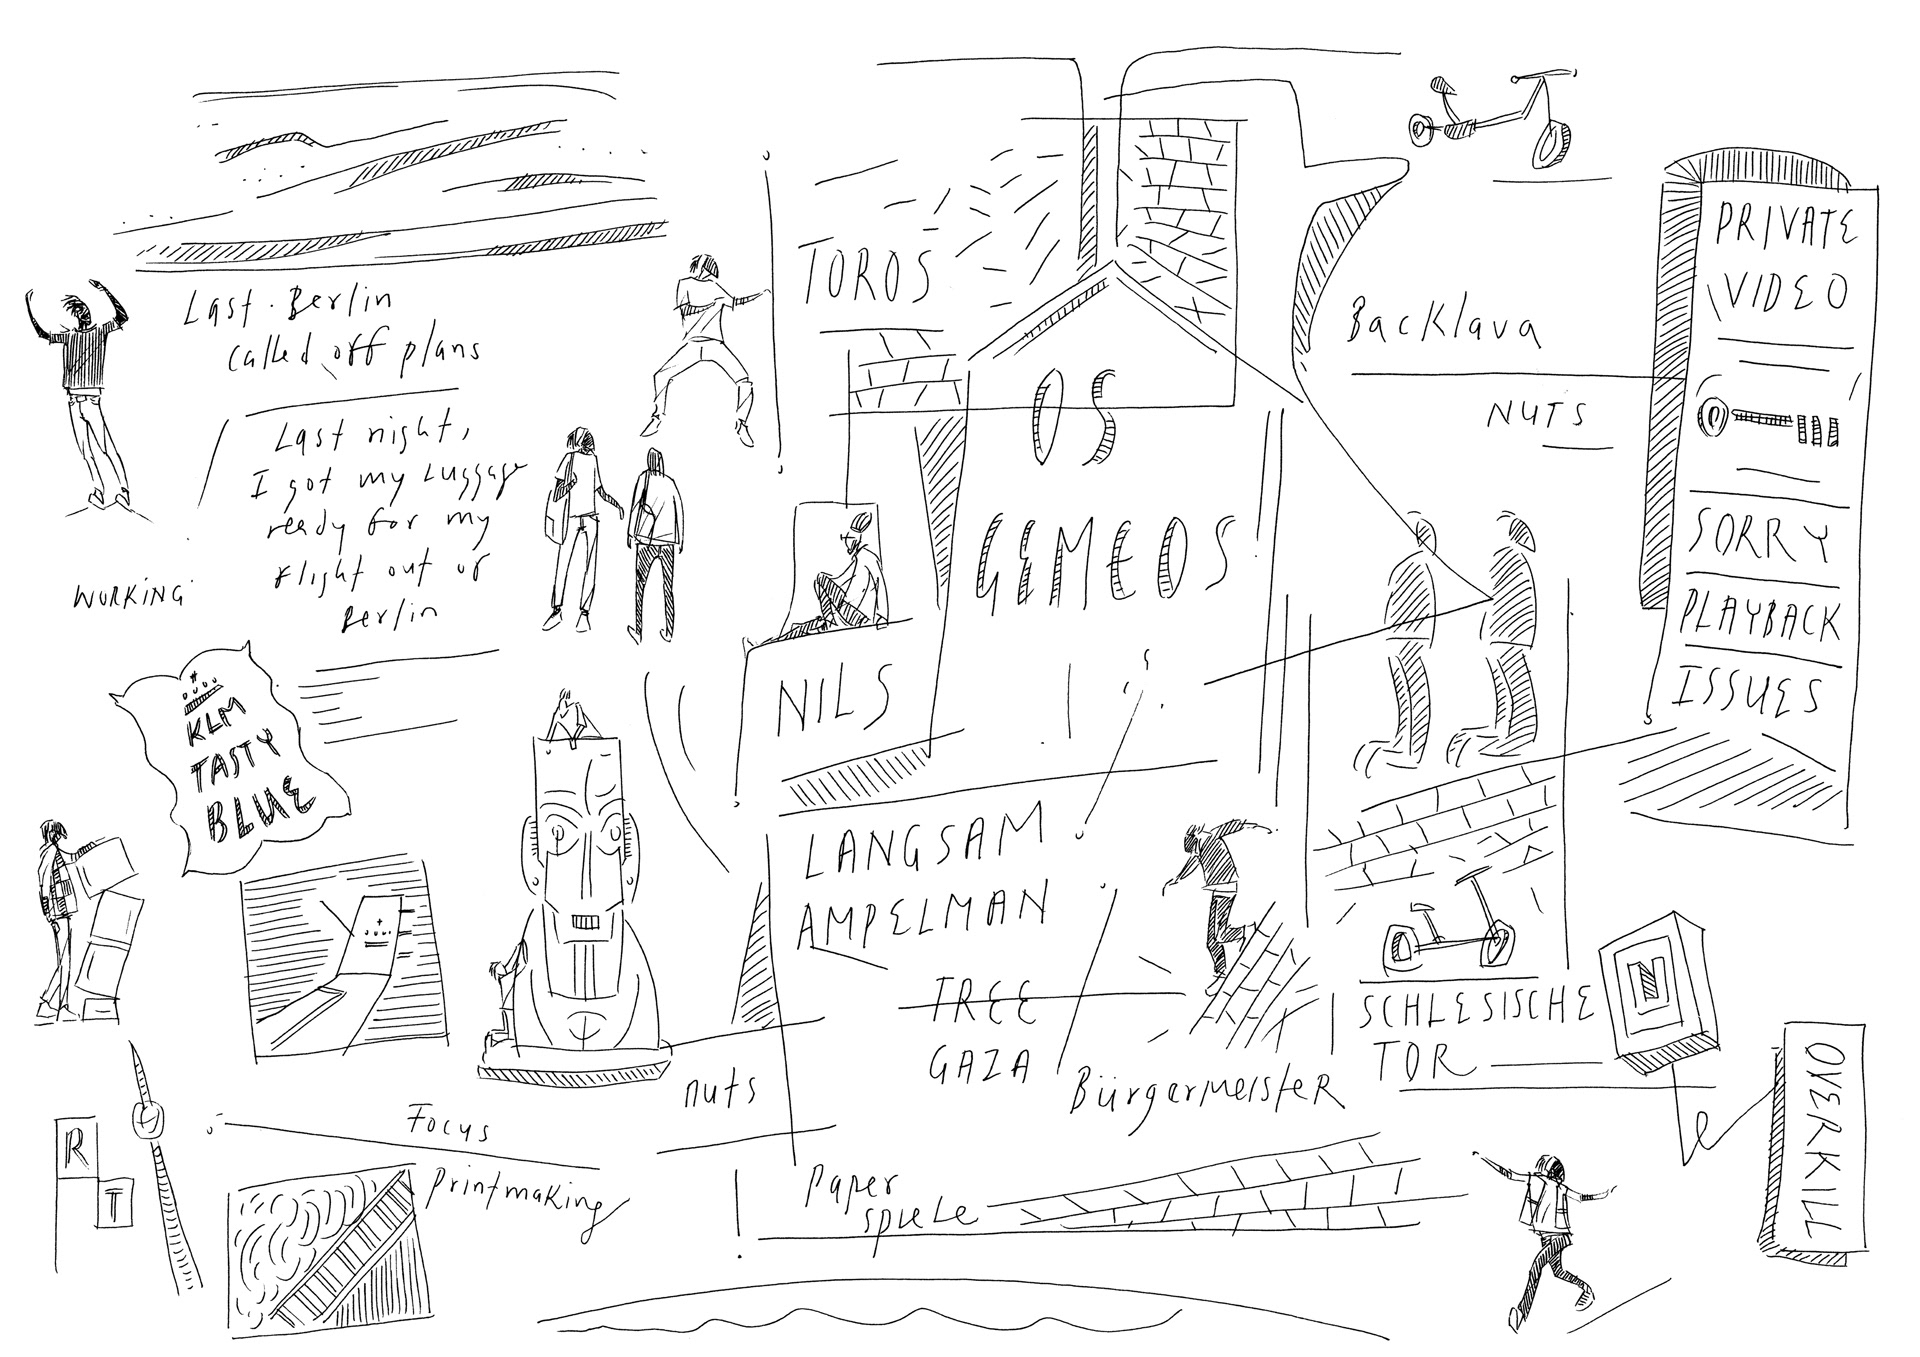 Last Berlin
called off plans
Last night,
I got my Luggage
ready for my
flight out of
Berlin
WORKING
KLM
TASTY
BLUE
R
T
Focus
Printmaking
nuts
TOROS
OS
GEMEOS
NILS
LANGSAM
AMPELMAN
TREE
GAZA
BürgerMeisteR
Paper
spiele
BacKlava
NUTS
PRIVATE
VIDEO
SORRY
PLAYBACK
ISSUES
SCHLESISCHE
TOR
N
OVERKILL